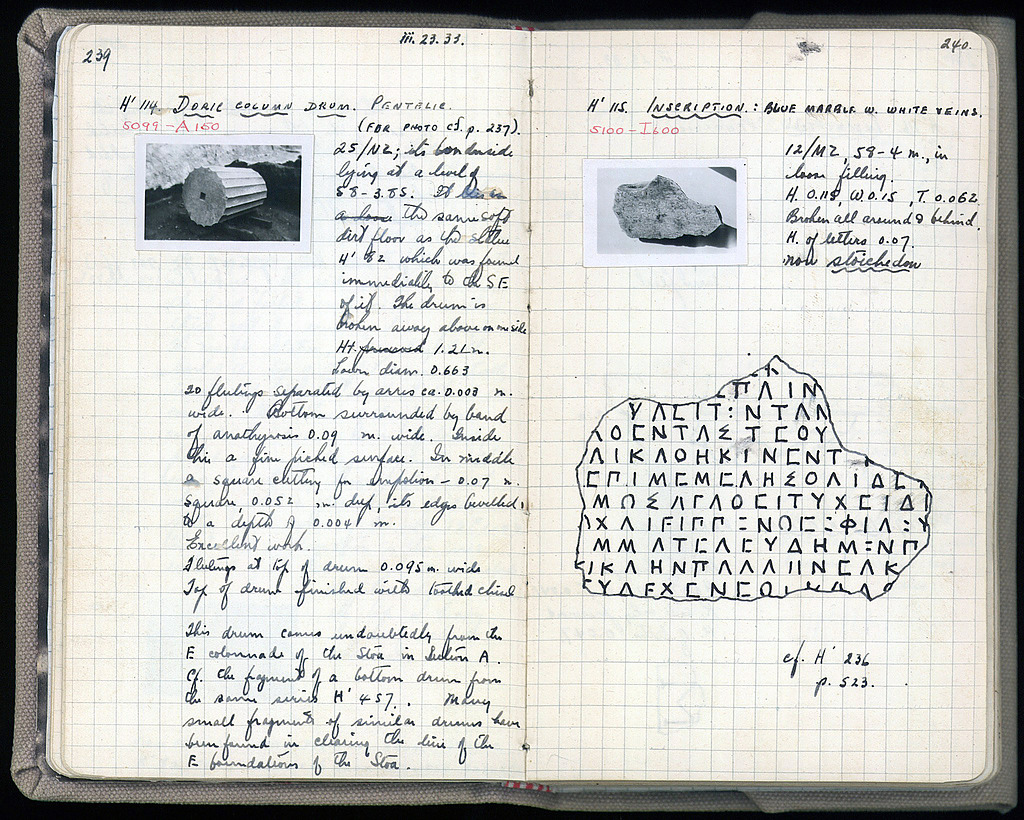 239
iii. 23. 33.
H' 114. DORIC COLUMN DRUM. PENTELIC.
5099-A 150
(FOR PHOTO cf. p. 237).
25/ΝΖ; its
lying at a level of
58-3.85. It
the same soft
dirt floor as the statue
H' 82 which was found
immediately to the SE
of it. The drum is
broken away above on one side
Ht preserved 1.21 m.
Lower diam. 0.663
20 flutings separated by arrises ca. 0.003 m.
wide. Bottom surrounded by band
of anathyrosis 0.09 m. wide. Inside
this a fine picked surface. In middle
a square cutting for empolion - 0.07 m.
square, 0.052 m. deep, its edges bevelled
to a depth of 0.004 m.
Excellent work.
Flutings at top of drum 0.095 m. wide
Top of drum finished with toothed chisel
This drum comes undoubtedly from the
E colonnade of the Stoa in Section A.
Cf. the fragment of a bottom drum from
the same series H' 457. Many
small fragments of similar drums have
been found in clearing the line of the
E foundations of the Stoa.
240.
H' 115. INSCRIPTION: BLUE MARBLE W. WHITE VEINS.
5100-I 600
12/ΜΖ, 58-4 m., in
loose filling.
H. 0.118, W. 0.15, T. 0.062.
Broken all around & behind.
H. of letters 0.07.
non stoichedon
ΠΛΙΝ
ΥΛΣΙΤ:ΝΤΛΛ
ΛΟΕΝΤΛΣΤΟΟΥ
ΛΙΚΛΟΗΚΙΝΕΝΤ
ΕΠΙΜΕΜΕΛΗΣΟΛΙΔΕ
ΜΩΣΛΓΛΟΕΙΤΥΧΕΙΔ
ΜΜΛΤΕΛΕΥΔΗΜΞΝΠ
ΙΚΛΗΝΠΛΛΛΙΙΝΕΛΚ
cf. H' 236
p. 523.